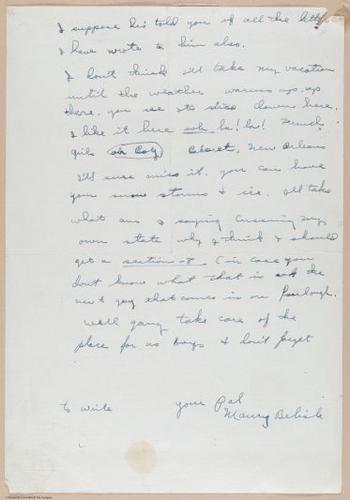 I suppose he's told you of all the letters
I have wrote to him also.
I don't think I'll take my vacation
until the weather warms up, up
there, you see its nice down here.
I like it here ooh la! la! French
girls oh boy closest, New Orleans
I'll sure miss it. you can have
your snow storms & ice. I'll take
what am I saying cursing my
own state why I think I should
get a section 8 (in case you
don't know what that is ask the
next guy that comes in on Furlough.
well gang take care of the
place for us boys & don't forget
to write your Pal
Maury Belisle